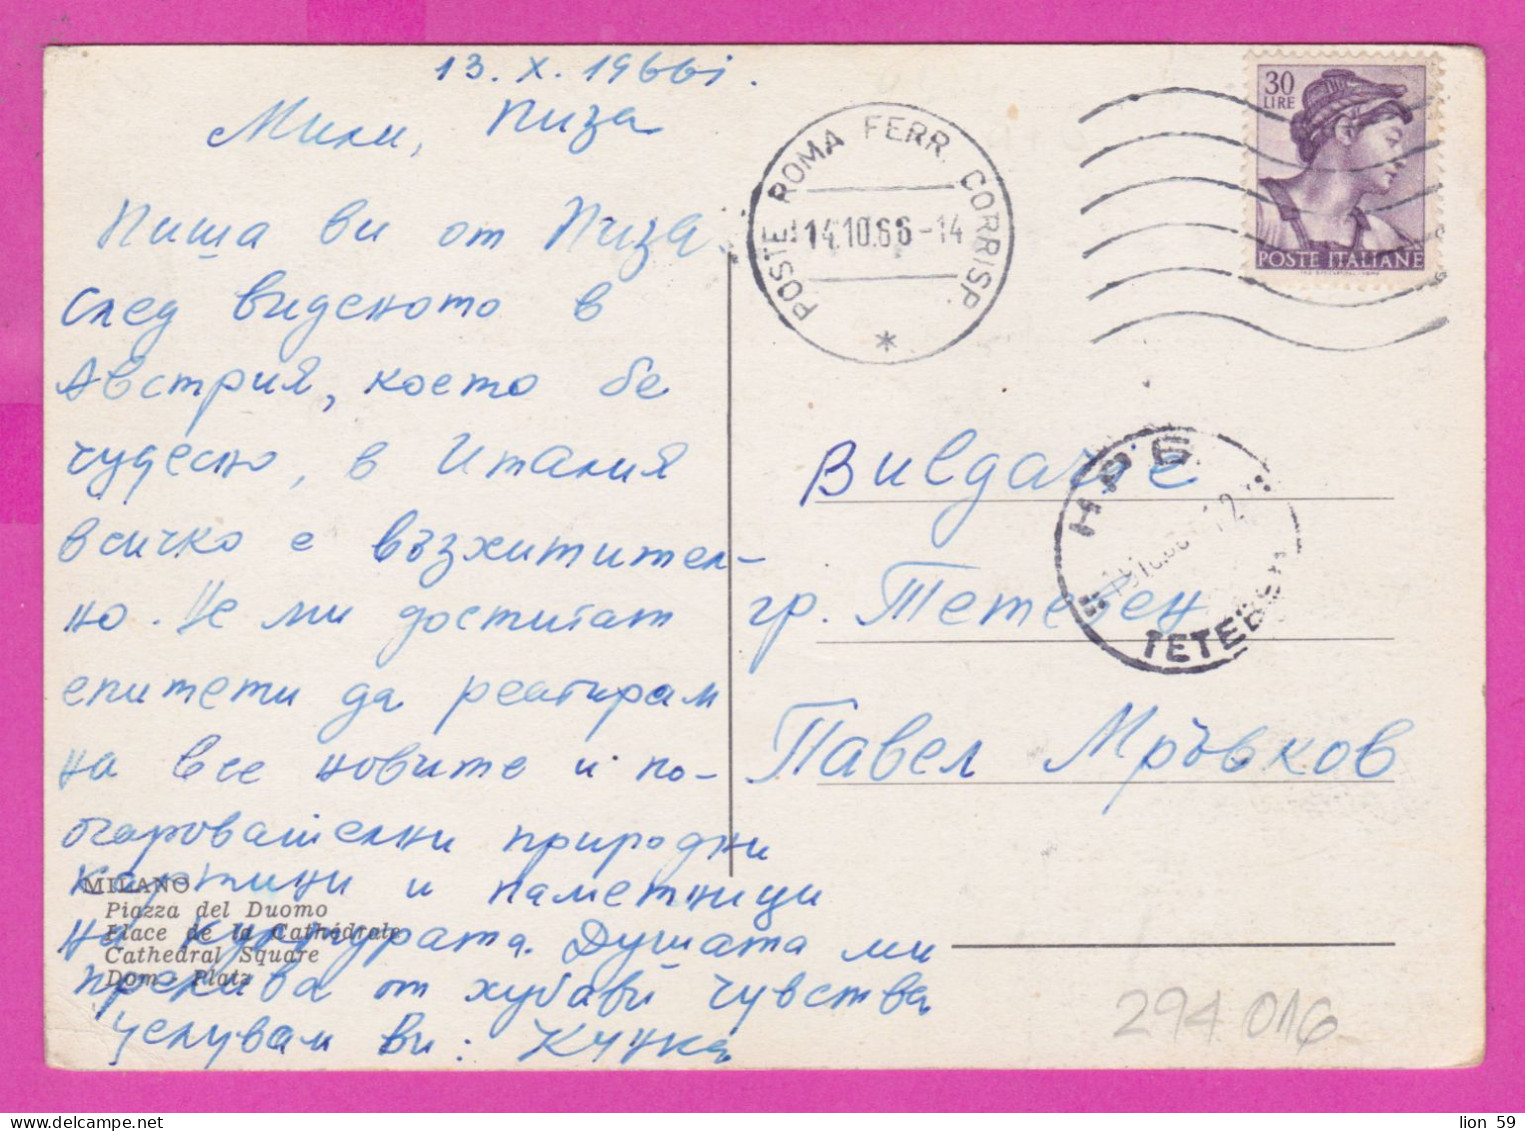 13. X. 1966г.
Мили, Пиза
Пиша ви от Пиза
след виденото в
Австрия, което бе
чудесно, в Италия
всичко е възхитител-
но. Не ми достигат
епитети да реагирам
на все новите и по-
очарователни природни
картини и паметници
на културата. Душата ми
прелива от хубави чувства
Целувам Ви:
MILANO
Piazza del Duomo
Place de la Cathédrale
Cathedral Square
Dom - Platz
POSTE ROMA FERR. CORRISP.
14.10.66-14
*
30
LIRE
POSTE ITALIANE
НРБ
ТЕТЕВЕН
Bulgarie
гр. Тетевен
Павел Мръвков
294016
lion 59